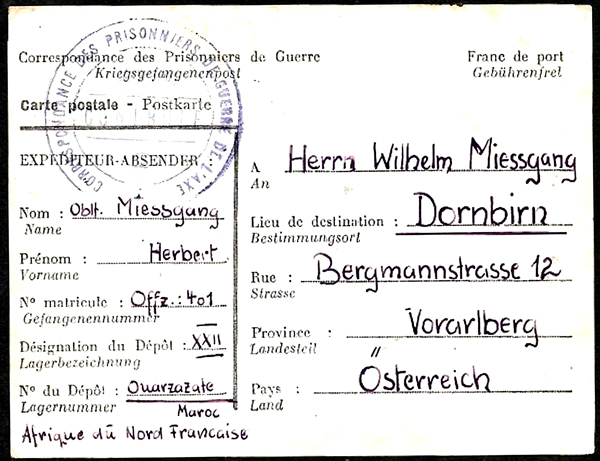 Correspondance des Prisonniers de Guerre
Kriegsgefangenenpost
Franc de port
Gebührenfrei
Carte postale - Postkarte
CORRESPONDANCE DES PRISONNIERS DE GUERRE DE L'AXE
EXPÉDITEUR-ABSENDER
Nom : Oblt. Miessgang
Name
Prénom : Herbert
Vorname
N° matricule : Offz.: 401
Gefangenennummer
Désignation du Dépôt : XXII
Lagerbezeichnung
N° du Dépôt : Ouarzazate
Lagernummer
Maroc
Afrique du Nord Francaise
A Herrn Wilhelm Miessgang
An
Lieu de destination : Dornbirn
Bestimmungsort
Rue : Bergmannstrasse 12
Strasse
Province : Vorarlberg
Landesteil
Pays : Österreich
Land